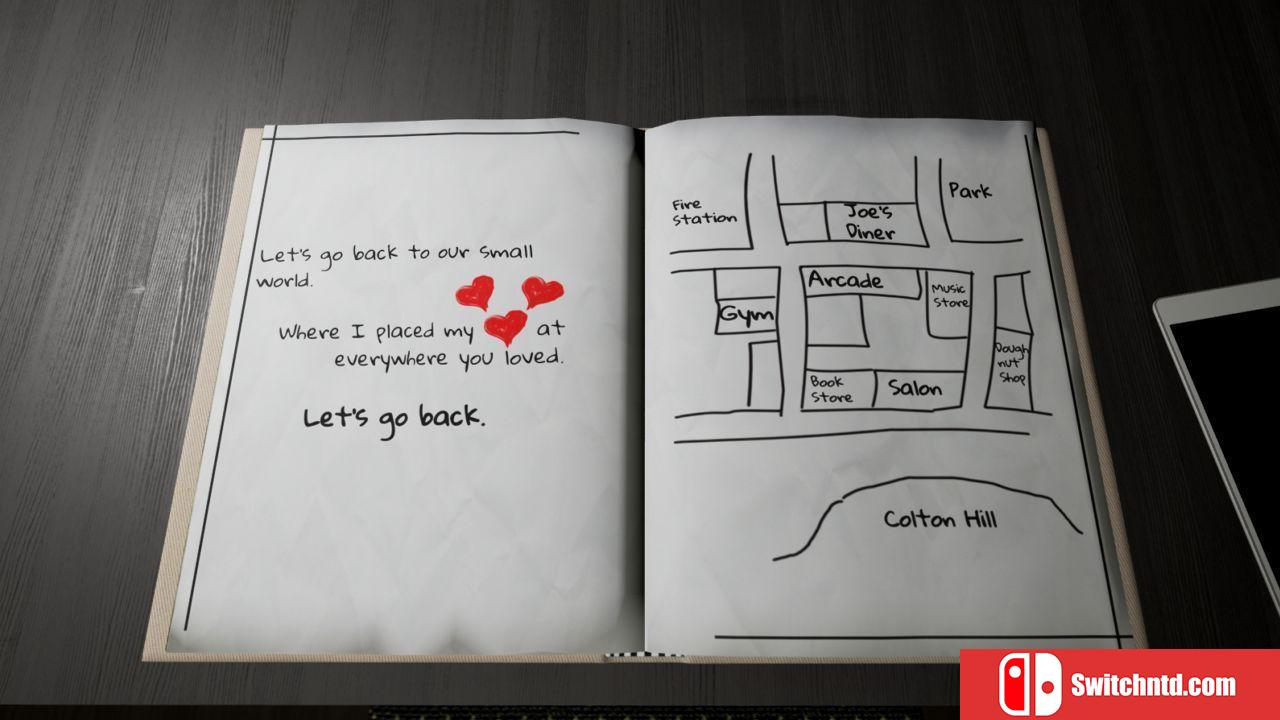 Let's go back to our small
world.
Where I placed my at
everywhere you loved.
Let's go back.
Fire
Station
Joe's
Diner
Park
Arcade
Music
Store
Gym
Dough
nut
Shop
Book
Store
Salon
Colton Hill
Switchntd.com